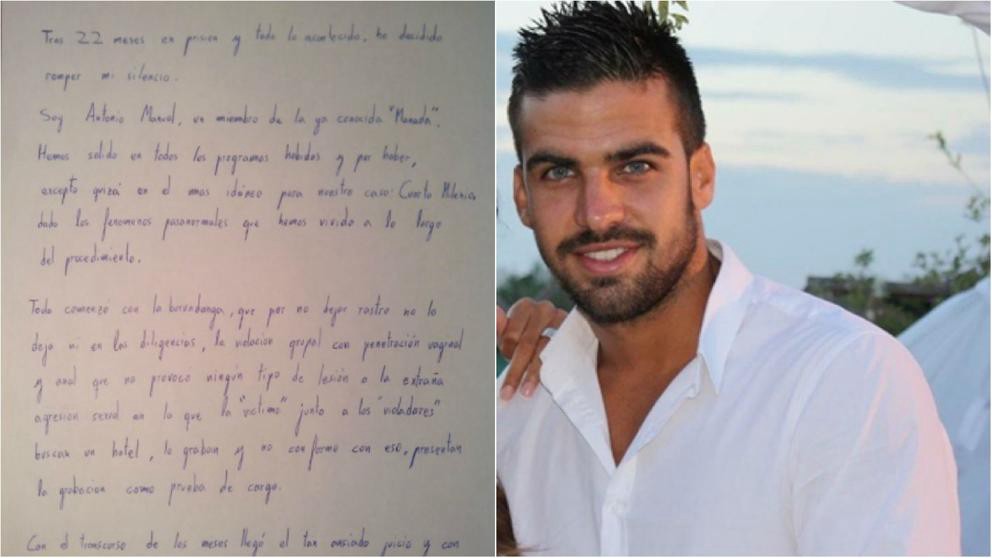 Tras 22 meses en prision y todo lo acontecido, he decidido
romper mi silencio.
Soy Antonio Manuel, un miembro de la ya conocida "Manada".
Hemos salido en todos los programas habidos y por haber,
excepto quizá en el mas idóneo para nuestro caso: Cuarto Milenio,
dado los fenomenos paranormales que hemos vivido a lo largo
del procedimiento.
Todo comenzó con la burundanga, que por no dejar rastro no lo
deja ni en las diligencias, la violacion grupal con penetración vaginal
y anal que no provocó ningún tipo de lesión o la extraña
agresion sexual en la que la "victima" junto a los "violadores"
buscan un hotel, lo graban y no conforme con eso, presentan
la grabacion como prueba de cargo.
Con el transcurso de los meses llegó el tan ansiado juicio y con